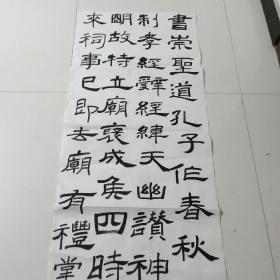 書崇聖道孔子作春秋
制孝經辭經緯天幽讚神
明故特立廟褒成侯四時
來祠事已即去廟有禮掌